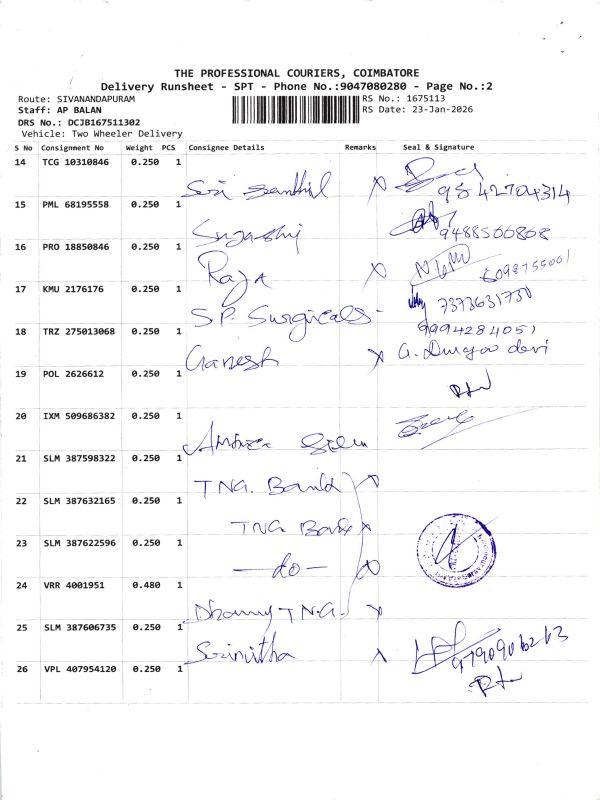 THE PROFESSIONAL COURIERS, COIMBATORE
Delivery Runsheet - SPT - Phone No.:9047080280 - Page No.:2
Route: SIVANANDAPURAM
Staff: AP BALAN
DRS No.: DCJB167511302
Vehicle: Two Wheeler Delivery
RS No.: 1675113
RS Date: 23-Jan-2026
S No Consignment No Weight PCS Consignee Details Remarks Seal & Signature
14 TCG 10310846 0.250 1
Sri Senthil 9842704314
15 PML 68195558 0.250 1
9488566868
16 PRO 18850846 0.250 1
Raja
17 KMU 2176176 0.250 1
S.P. Surgicals - 7373631730
18 TRZ 275013068 0.250 1
9994284051
Ganesh G. Durga devi
19 POL 2626612 0.250 1
20 IXM 509686382 0.250 1
21 SLM 387598322 0.250 1
TNG. Bank
22 SLM 387632165 0.250 1
TNG Bank
23 SLM 387622596 0.250 1
—do—
24 VRR 4001951 0.480 1
TNG.
25 SLM 387606735 0.250 1
Srinitha
26 VPL 407954120 0.250 1